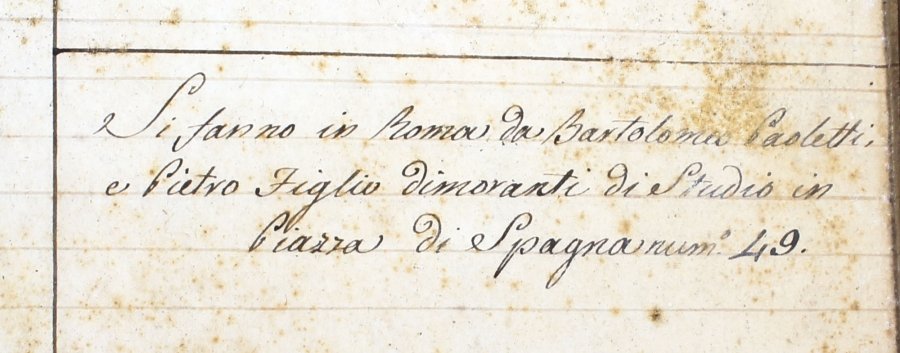 Si fanno in Roma da Bartolomeo Paoletti,
e Pietro Figlio dimoranti di Studio in
Piazza di Spagna num.º 49.